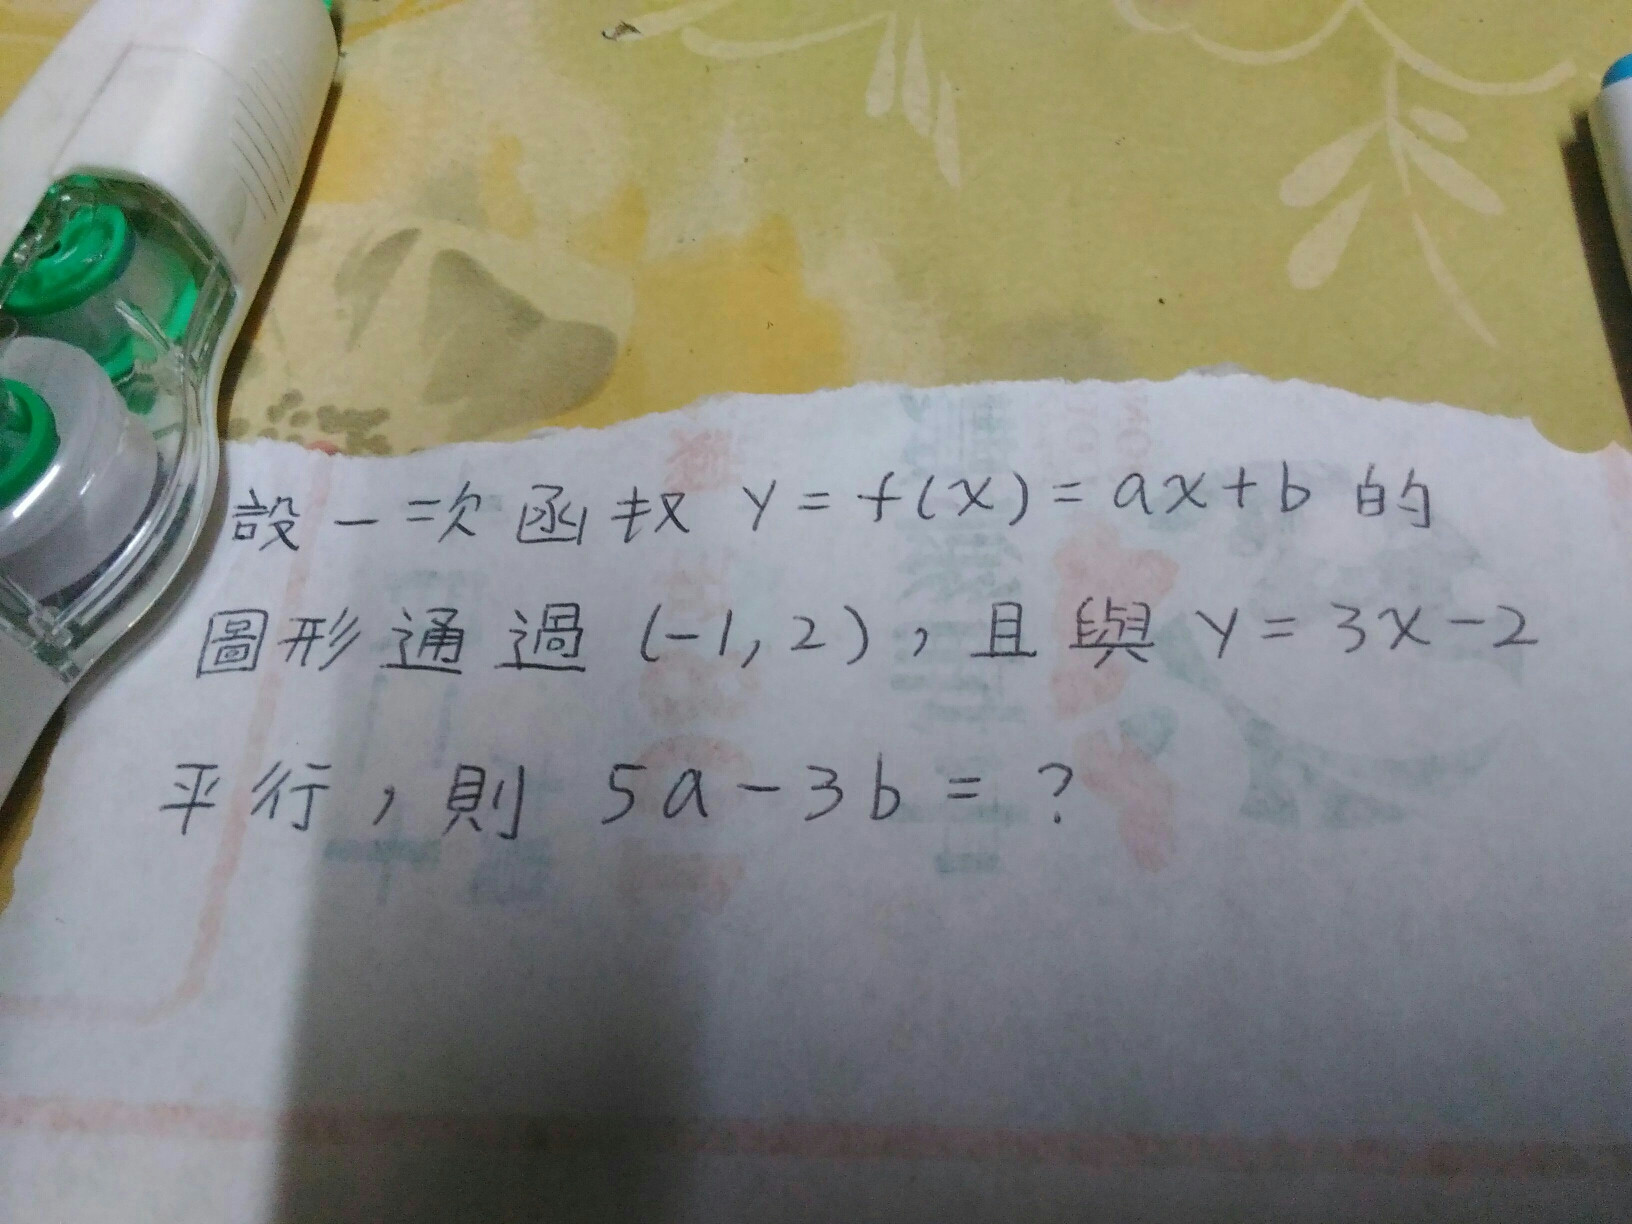 設一次函数 y = f(x) = ax+b 的
圖形通過 (-1,2),且與 y = 3x-2
平行,則 5a-3b = ?